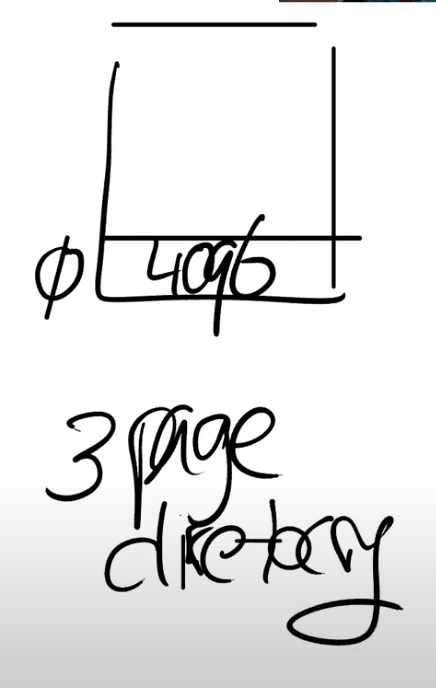 ϕ 4096
3 page
directory